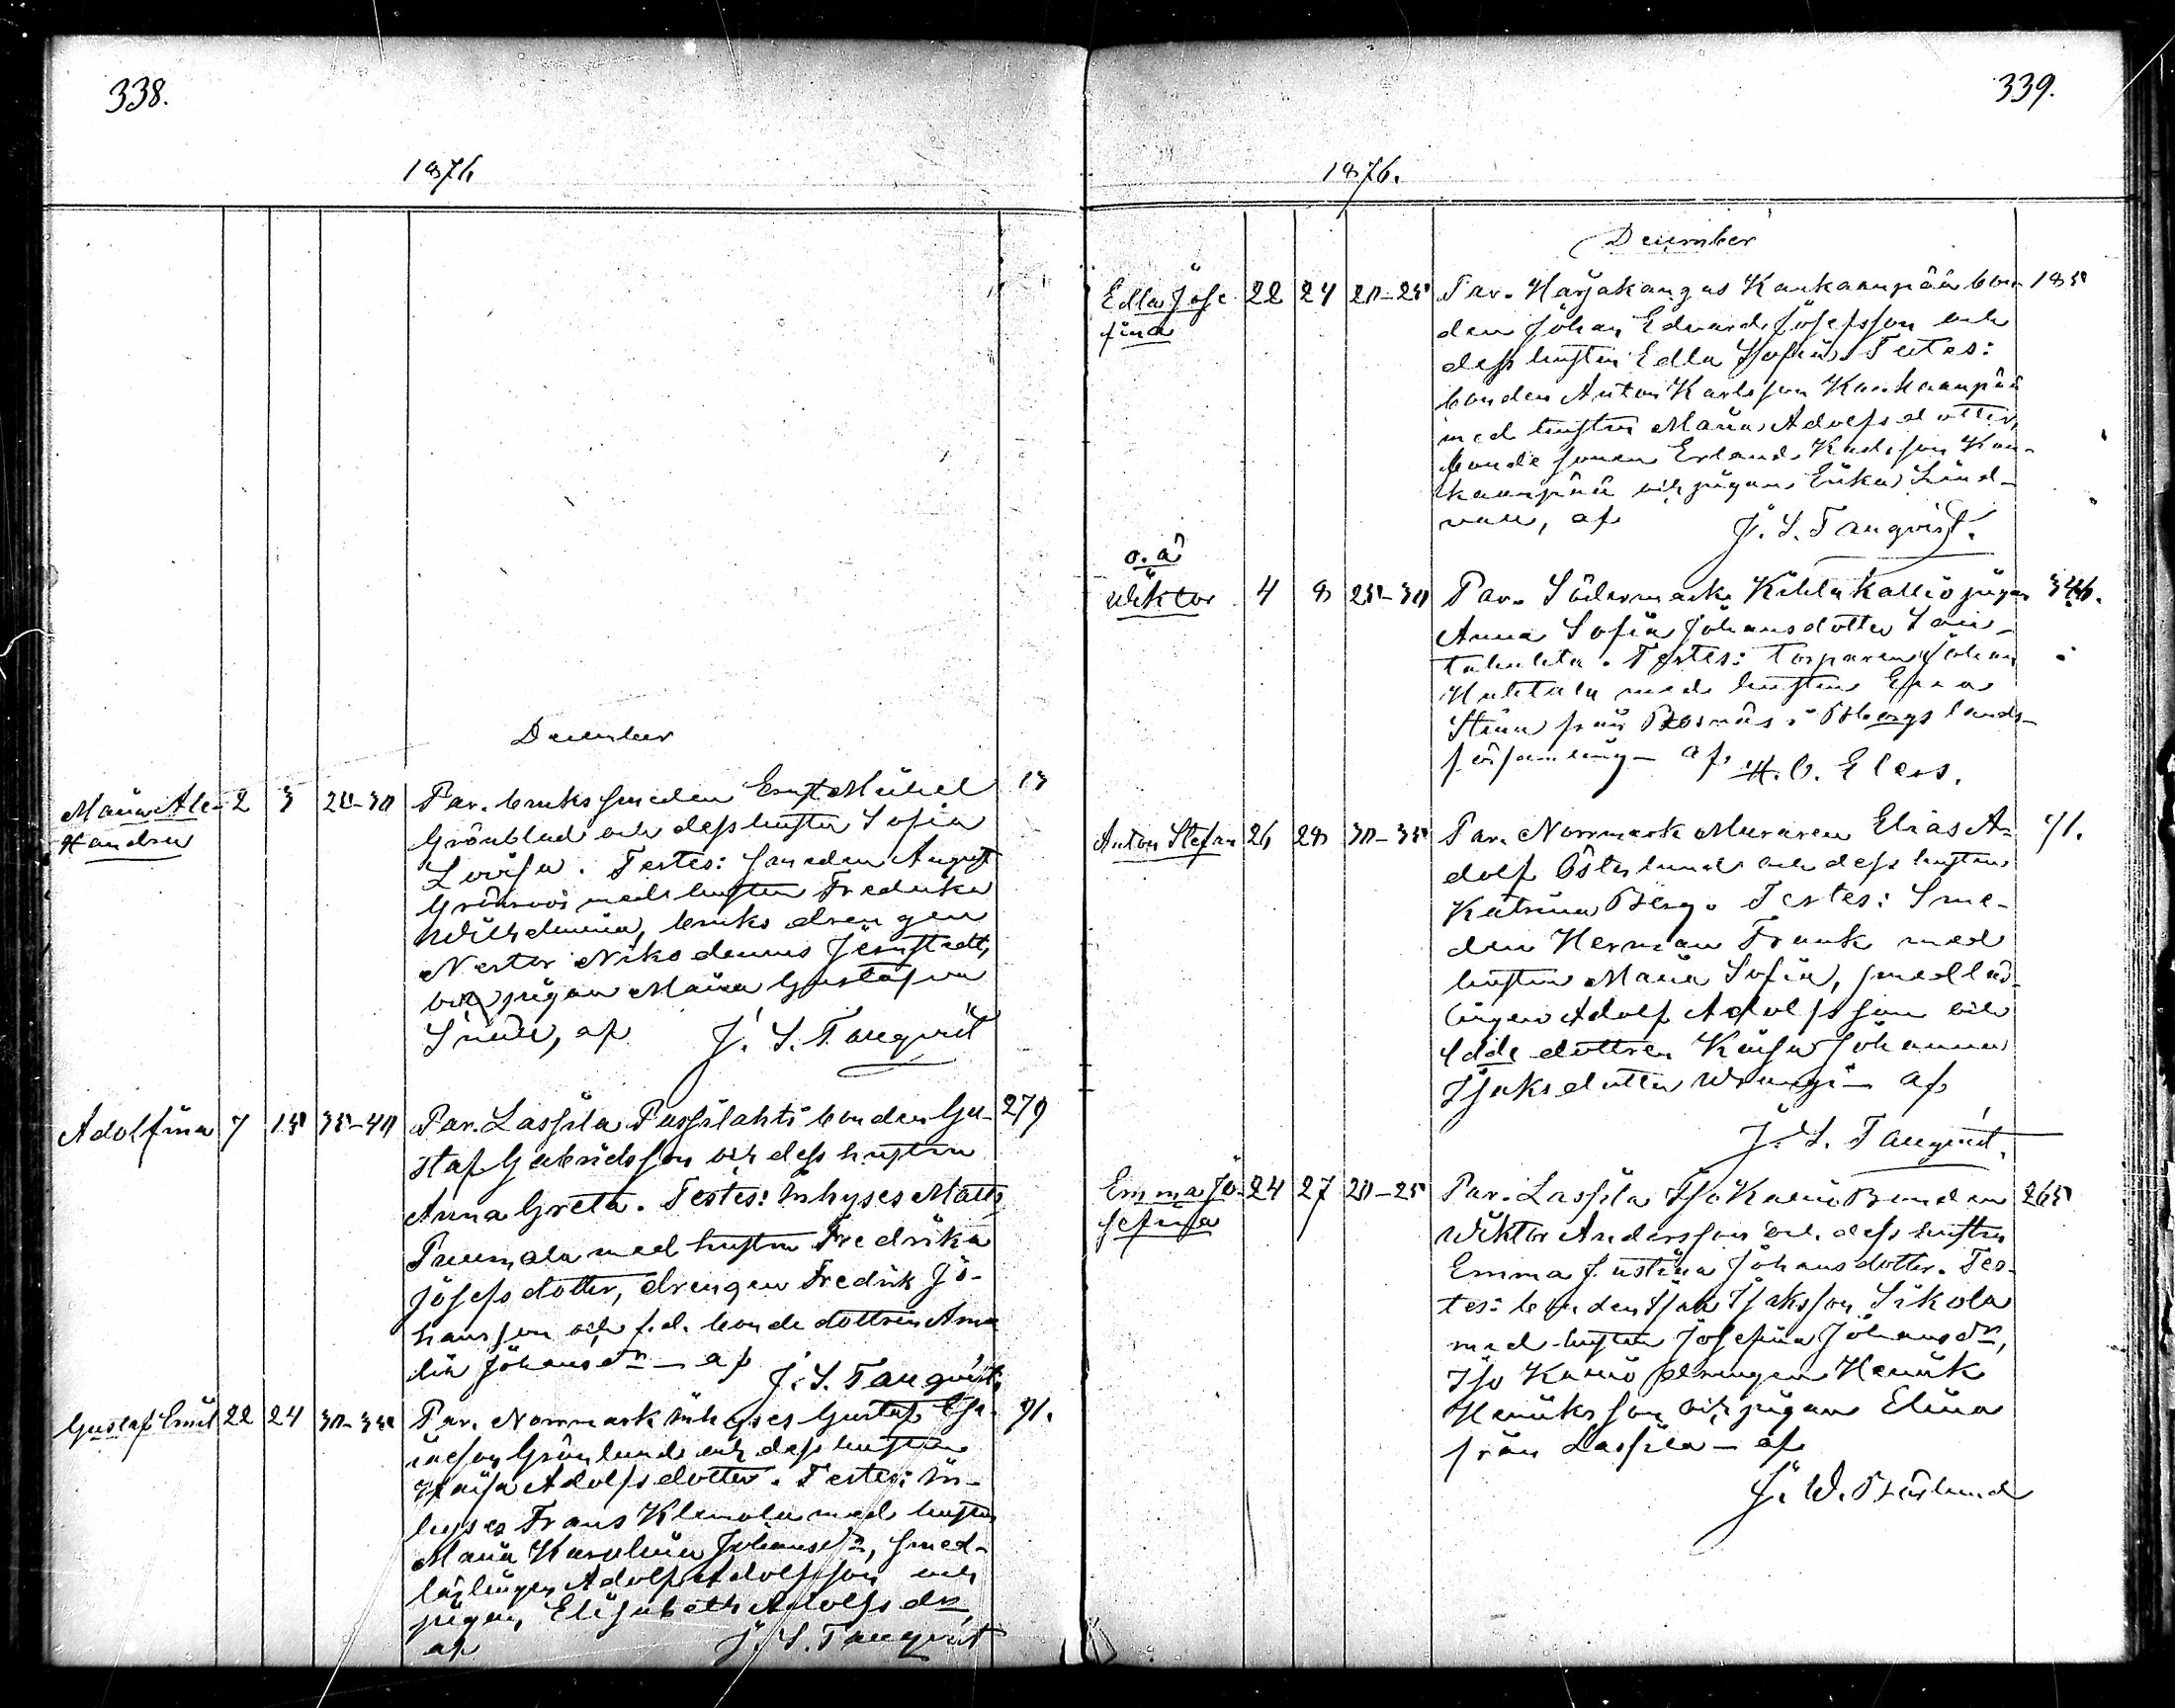 338.
1876
December
Maria Ale- 2 3 25-30 Par. bruks smeden Ernst Mikael 13
xandra Grönblad och dess hustru Sofia
Lovisa. Testes: smeden August
Grönroos med hustrun Fredrika
Wilhelmina, bruks drengen
Nestor Nikodemus Jernstedt,
och pigan Maria Gustafva
Snäll, af J. S. Tanqvist
Adolfina 7 15 35-40 Par. Lassila Passilahti bonden Gu- 279
staf Gabrielsson och dess hustru
Anna Greta. Testes: Inhyses Matts
med hustrun Fredrika
Josefsdotter, drengen Fredrik Jo-
hansson och f.d. bonde dottren Ama
lia Johansdr – af J. S. Tanqvist.
Gustaf Emil 22 24 30-35 Par. Norrmark inhyses Gustaf Esa- 91.
iæson Grönlund och dess hustrun
Kaisa Adolfsdotter. Testes: In-
hyses Frans Klemola med hustru
Maria Karolina Johansdr, smed-
lärlingen Adolf Adolfsson och
pigan, Elisabeth Adolfs dr,
af J. S. Tanqvist
339.
1876.
December
Edla Jose 22 24 20-25 Par. Harjakangas Kankaanpää bon- 185
fina den Johan Edvard Josefsson och
dess hustru Edla Sofia. Testes:
bonden Anton Karlsson Kankaanpää
med hustru Maria Adolfsdotter,
bonde sonen Erland Karlsson Kan-
kaanpää och pigan Erika Lind-
vall, af J. S. Tanqvist.
o. ä
Wiktor 4 8 25-30 Par. Södermark Kiklakallio pigan 346.
Anna Sofia Johansdotter
Testes: Torparen Johan
Huhtala med hustrun
Stina från i Bborgs lands-
församling – af
Anton Stefan 26 28 30-35 Par. Norrmark Muraren Elias A- 91.
dolf Österlund och dess hustru
Katrina Berg. Testes: Sme-
den Herman Frank med
hustrun Maria Sofia, smedlär-
lingen Adolf Adolfsson och
dottren Kaisa Johanna
Isaksdotter – af
J. S. Tanqvist.
Emma Jo- 24 27 20-25 Par. Lassila Iso Kario Bonden 265
sefina Wiktor Andersson och dess hustru
Emma Justina Johansdotter. Tes-
tes: bonden Isak Isaksson Sikola
med hustrun Josefina Johansdr,
Iso Kario drengen Henrik
Henriksson och pigan Elina
från Lassila – af
J. W. Bärlund